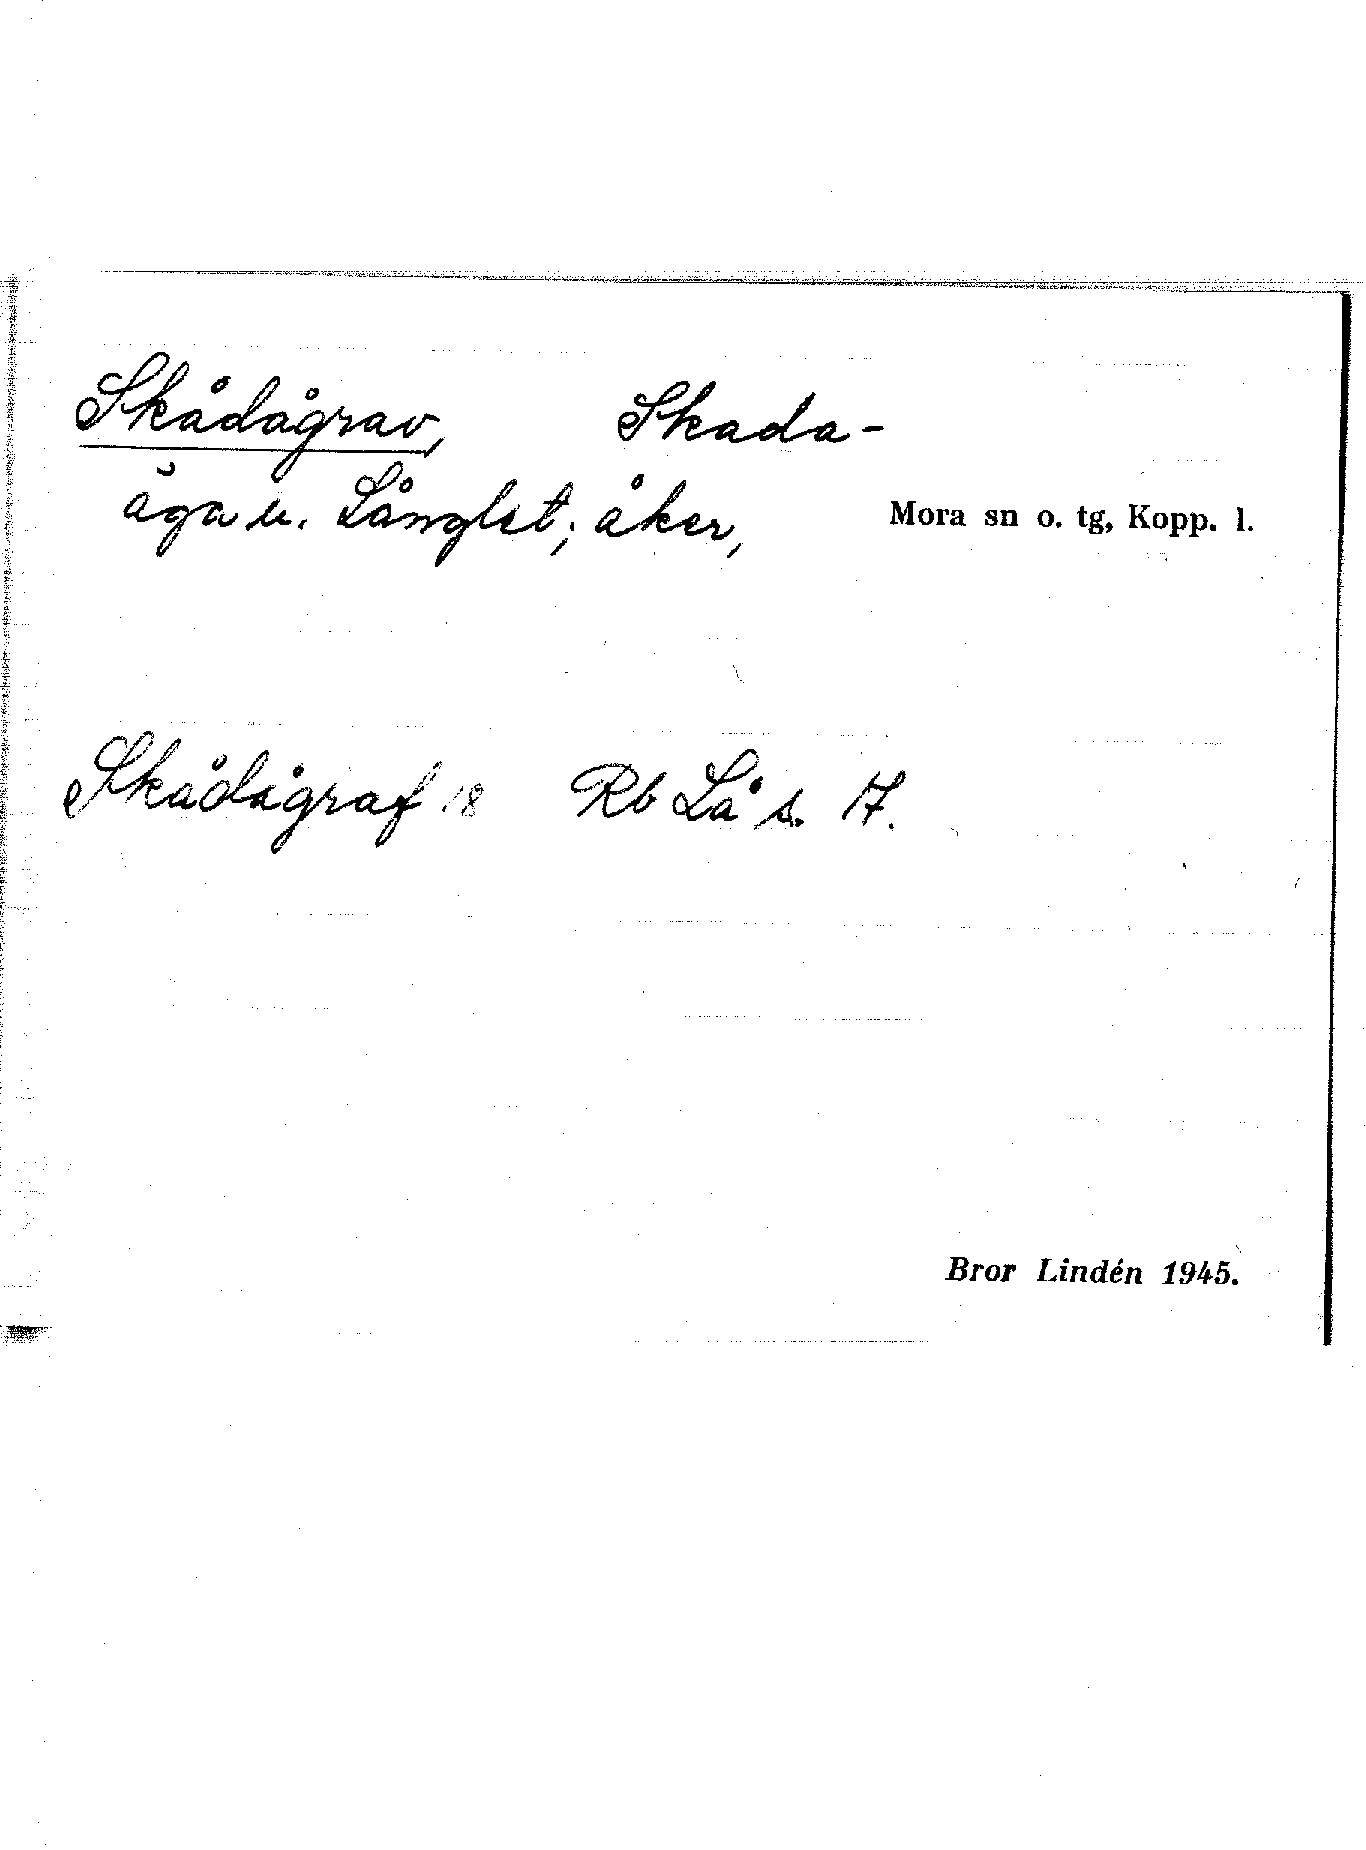 Skådågrav, Skada-
äga u. Långlet; åker, Mora sn o. tg, Kopp. l.
Skådågraf 18 Rb Lå s. 17.
Bror Lindén 1945.